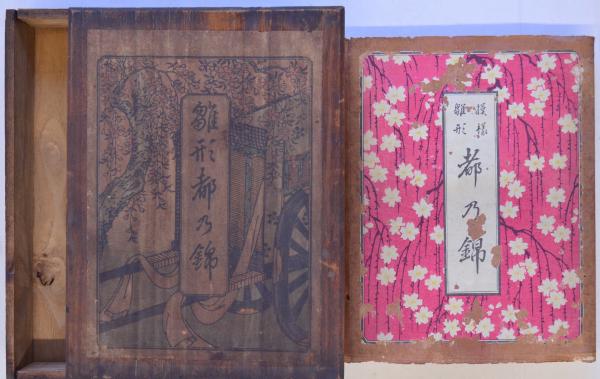 雛形都乃錦
模様
雛形
都乃錦